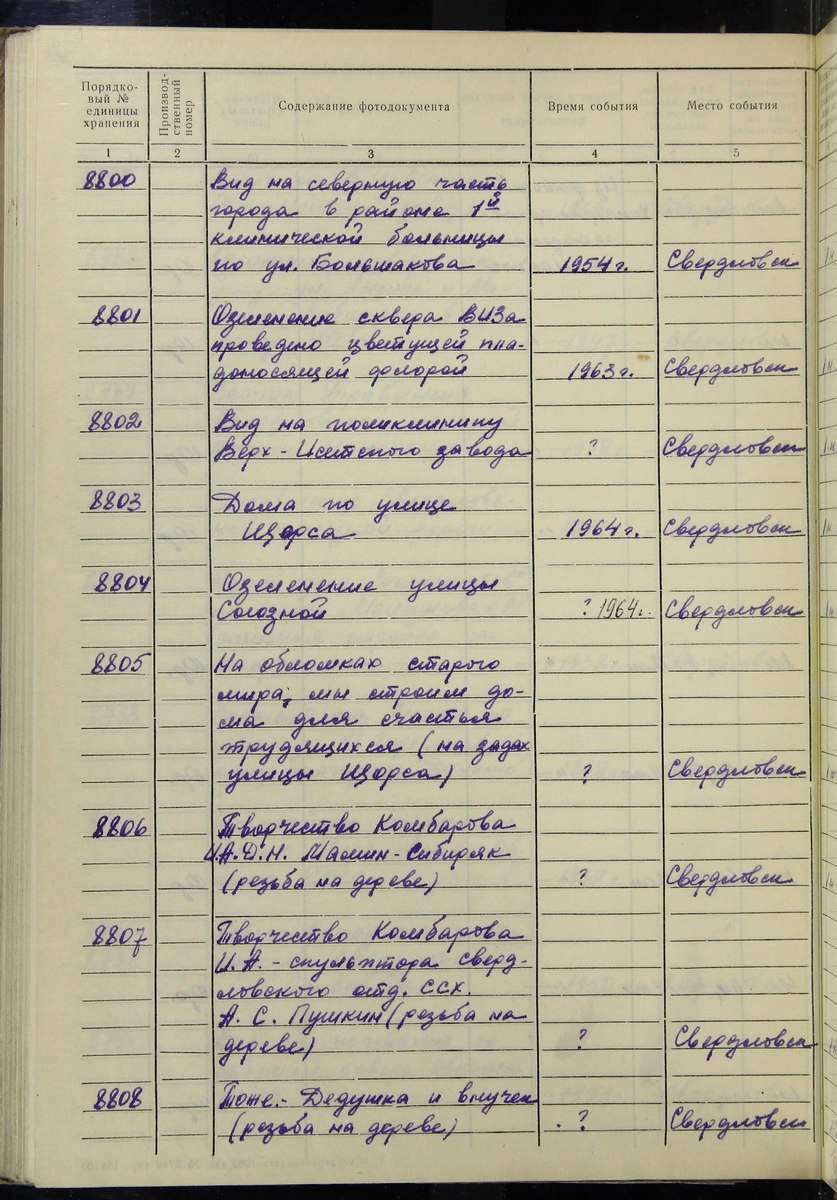 Порядко-
вый №
единицы
хранения
Производ-
ственный
номер
Содержание фотодокумента
Время события
Место события
1
2
3
4
5
8800
Вид на северную часть
города в районе 1й
клинической больницы
по ул. Большакова 1954 г. Свердловск
8801
Озеленение сквера ВИЗа
проведено цветущей пло-
доносящей флорой 1963 г. Свердловск
8802
Вид на поликлинику
Верх-Исетского завода ? Свердловск
8803
Дома по улице
Щорса 1964 г. Свердловск
8804
Озеленение улицы
Союзной ? 1964 г. Свердловск
8805
На обломках старого
мира, мы строим до-
ма для счастья
трудящихся (на задах
улицы Щорса) ? Свердловск
8806
Творчество Комбарова
И.А. Д.Н. Мамин-Сибиряк
(резьба на дереве) ? Свердловск
8807
Творчество Комбарова
И.А. - скульптора Сверд-
ловского отд. ССХ.
А. С. Пушкин (резьба на
дереве) ? Свердловск
8808
Тоже.- Дедушка и внучек
(резьба на дереве) ? Свердловск